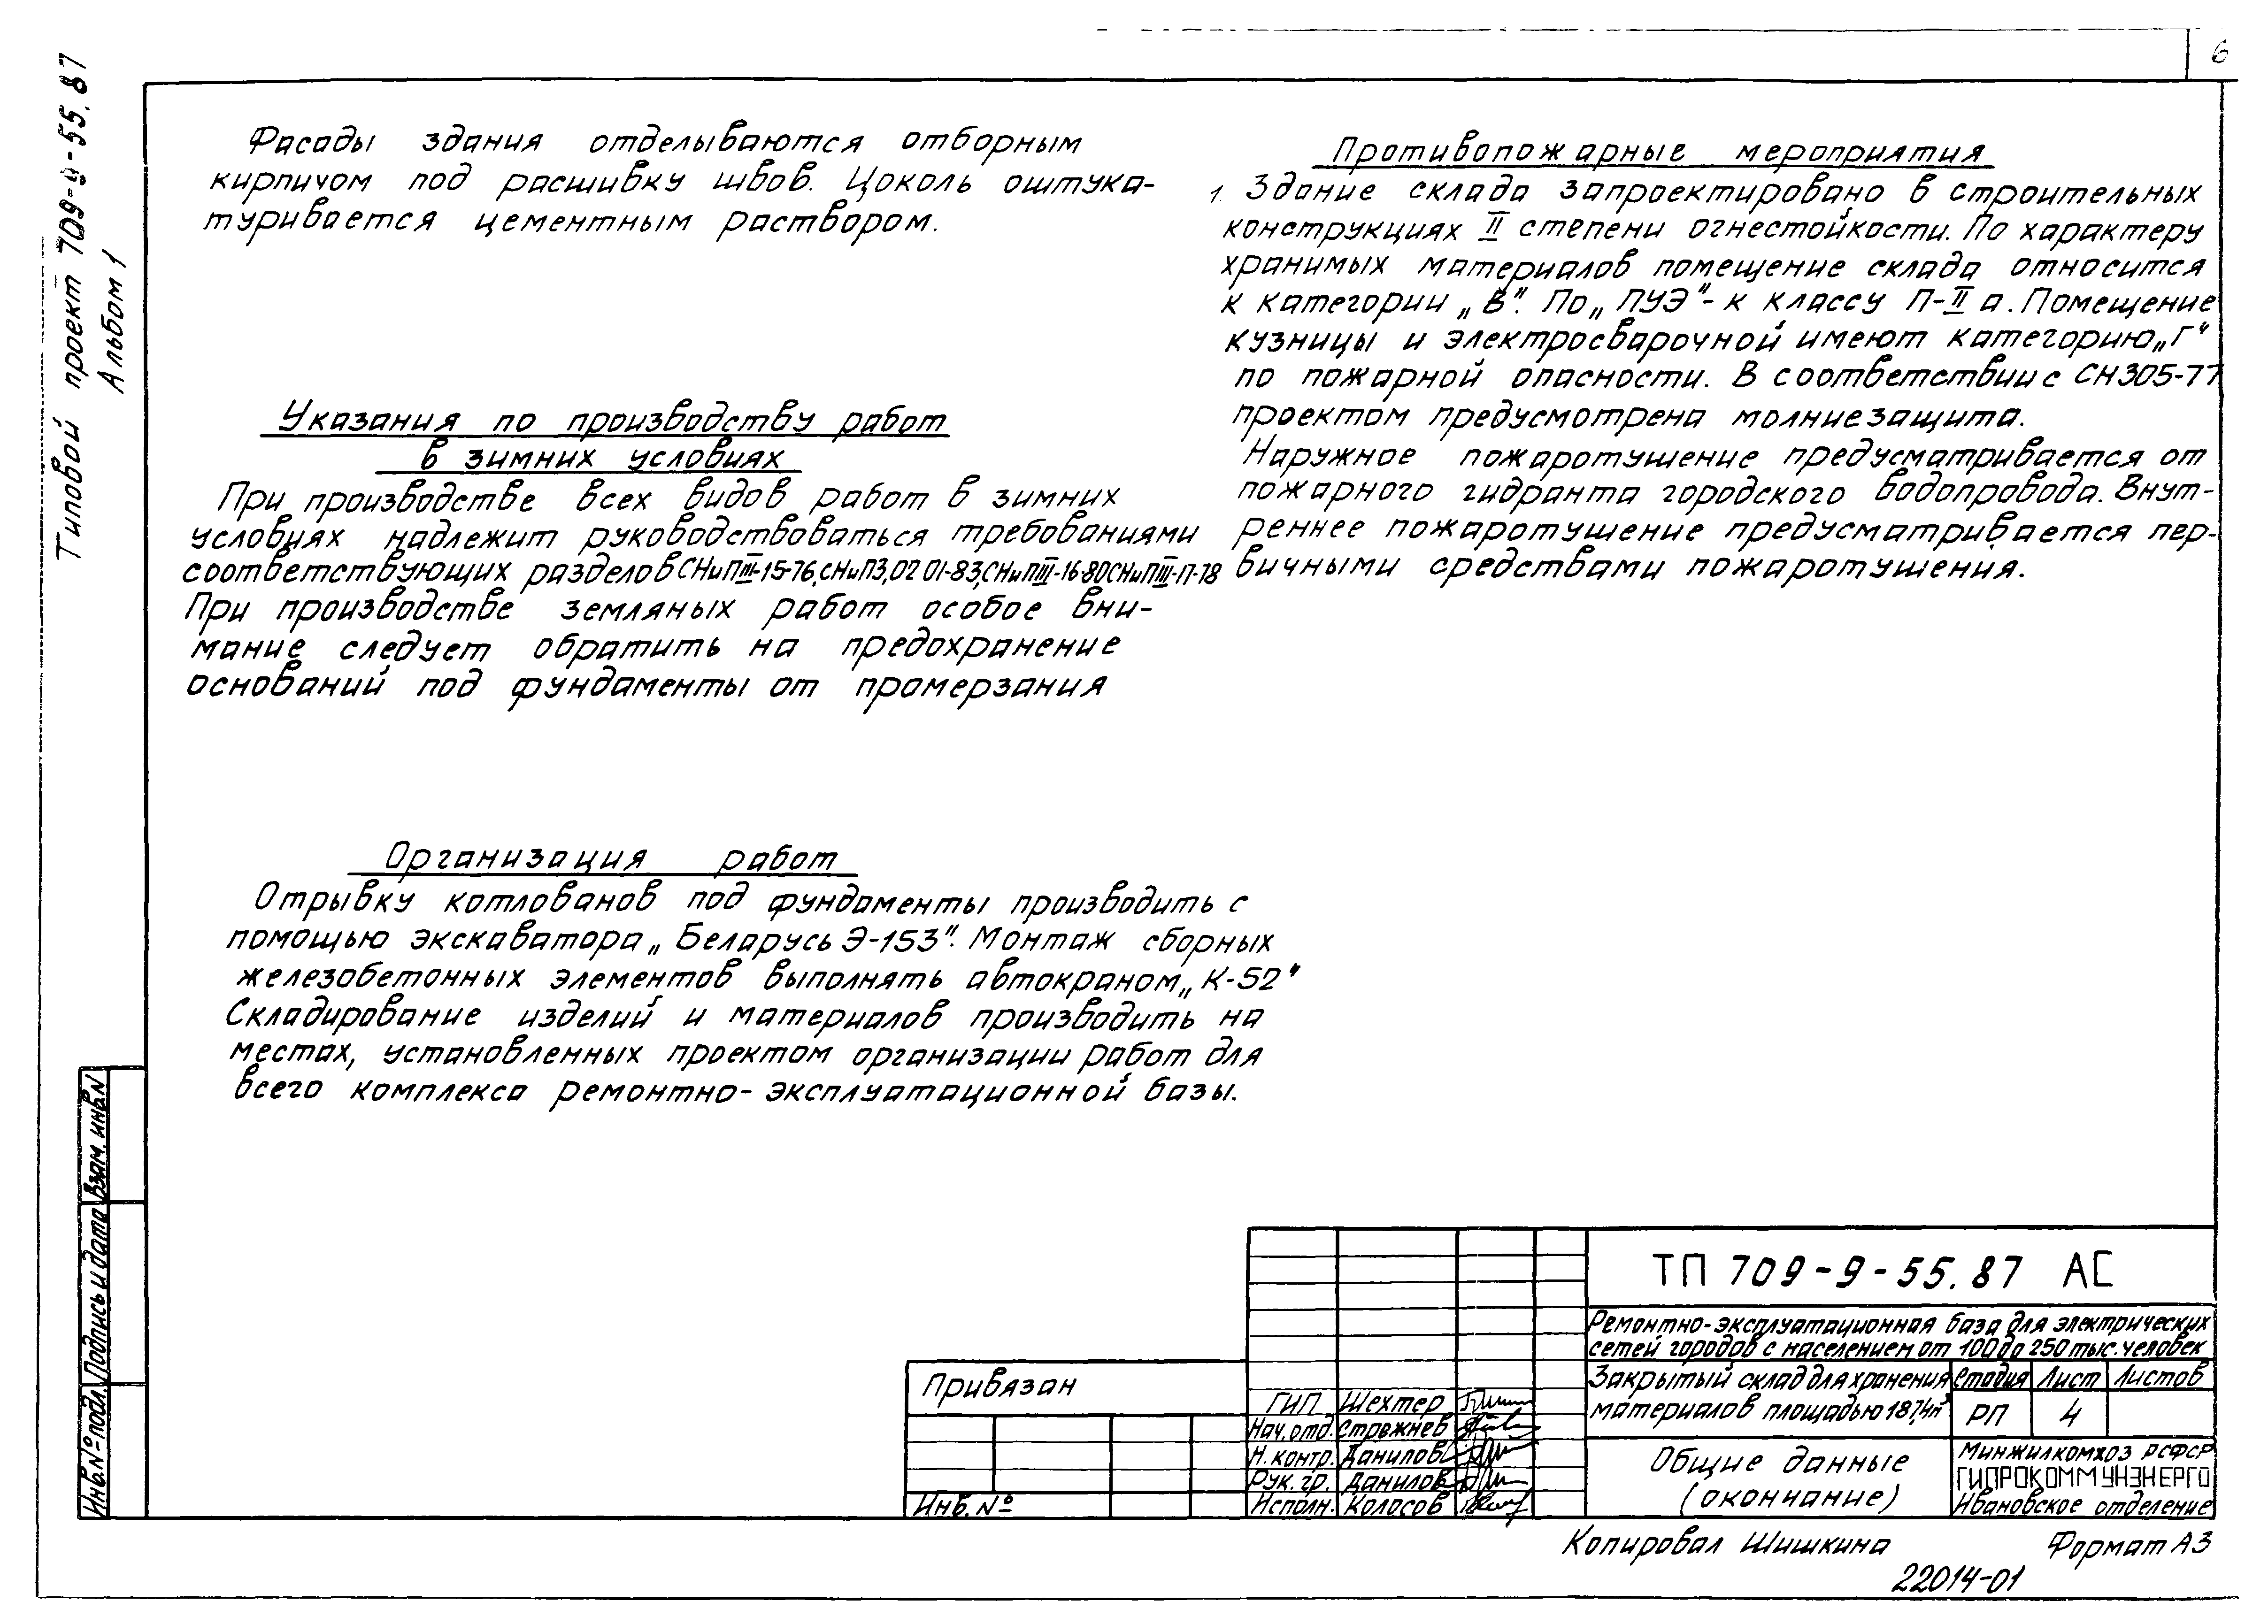 6
Типовой проект 709-9-55.87
Альбом 1
Фасады здания отделываются отборным
кирпичом под расшивку швов. Цоколь оштука-
туривается цементным раствором.
Указания по производству работ
в зимних условиях
При производстве всех видов работ в зимних
условиях надлежит руководствоваться требованиями
соответствующих разделов СНиПIII-15-76, СНиП3.02 01-83, СНиПIII-16-80 СНиПIII-17-78
При производстве земляных работ особое вни-
мание следует обратить на предохранение
оснований под фундаменты от промерзания
Организация работ
Отрывку котлованов под фундаменты производить с
помощью экскаватора „Беларусь Э-153". Монтаж сборных
железобетонных элементов выполнять автокраном „К-52"
Складирование изделий и материалов производить на
местах, установленных проектом организации работ для
всего комплекса ремонтно-эксплуатационной базы.
Противопожарные мероприятия
1. Здание склада запроектировано в строительных
конструкциях II степени огнестойкости. По характеру
хранимых материалов помещение склада относится
к категории „В". По „ПУЭ"- к классу П-II а. Помещение
кузницы и электросварочной имеют категорию „Г"
по пожарной опасности. В соответствии с СН305-77
проектом предусмотрена молниезащита.
Наружное пожаротушение предусматривается от
пожарного гидранта городского водопровода. Внут-
реннее пожаротушение предусматривается пер-
вичными средствами пожаротушения.
Взам. инв.N
Подпись и дата
Инв.№ подл.
Привязан
Инв. №
ГИП Шехтер
Нач. отд. Стрежнев
Н. контр. Данилов
Рук. гр. Данилов
Исполн. Колосов
ТП 709-9-55.87 АС
Ремонтно-эксплуатационная база для электрических
сетей городов с населением от 100 до 250 тыс. человек
Закрытый склад для хранения
материалов площадью 187,4м²
Стадия Лист Листов
РП 4
Общие данные
(окончание)
Минжилкомхоз РСФСР
ГИПРОКОММУНЭНЕРГО
Ивановское отделение
Копировал Шишкина
Формат А3
22014-01